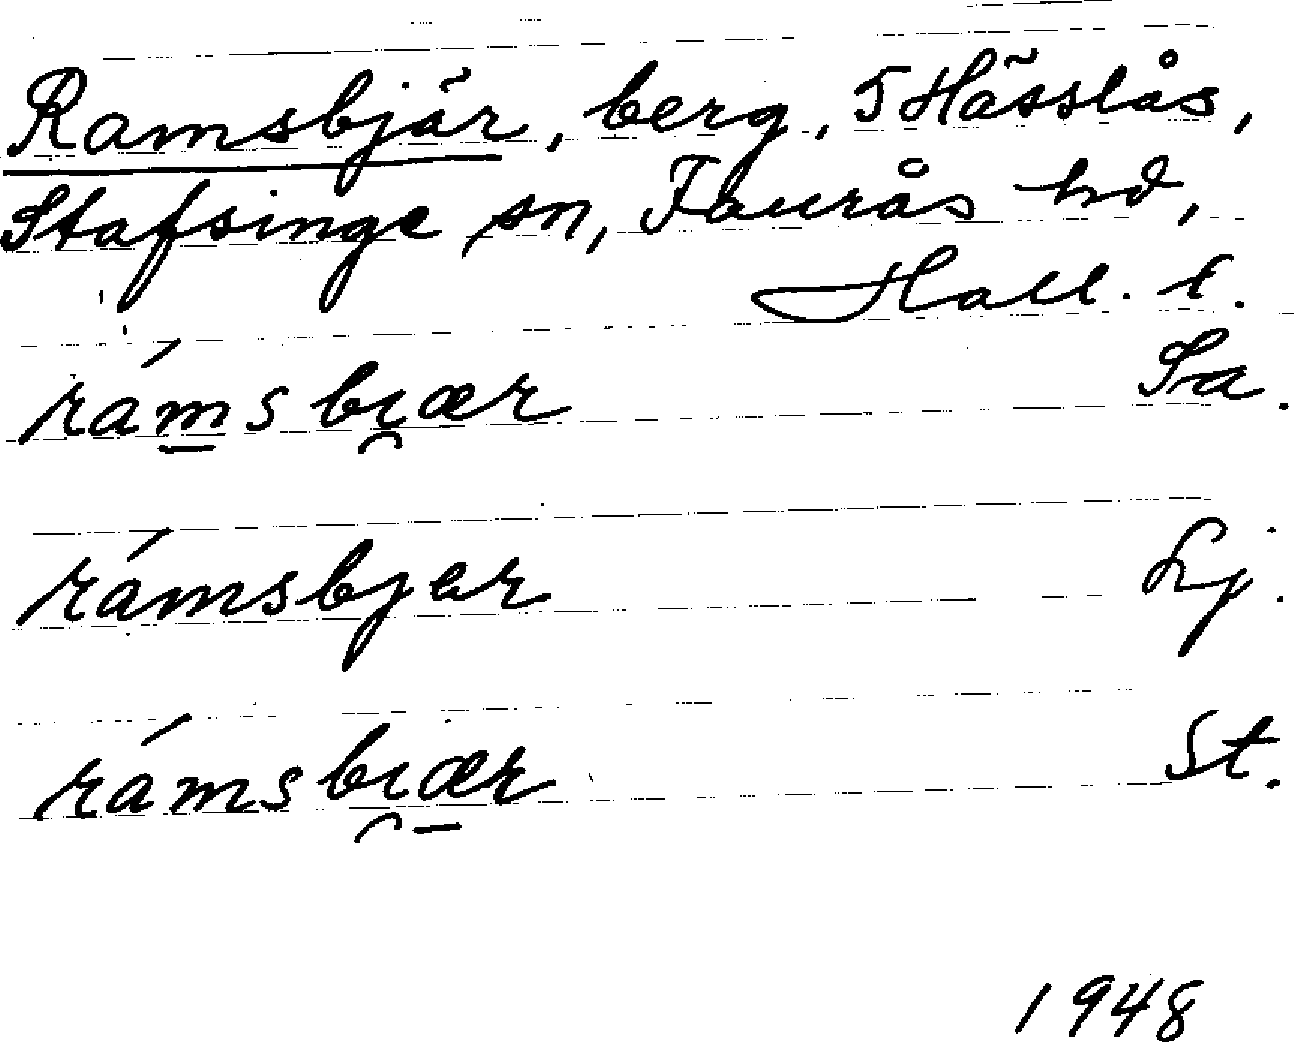 Ramsbjär, berg, 5 Hässlås,
Stafsinge sn, Faurås hd,
Hall. l.
rámsbi̯ær Sa.
rámsbjer Lj.
rámsbi̯ær St.
1948